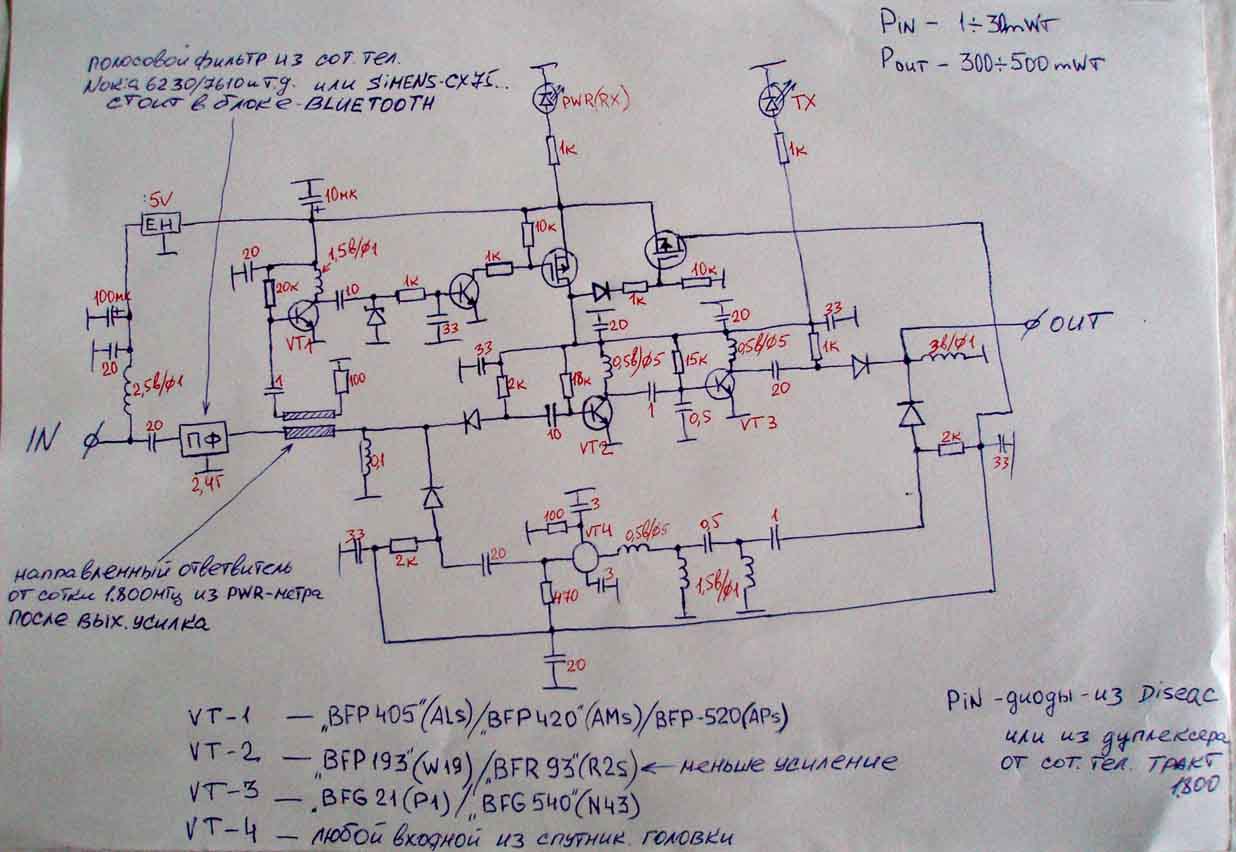 PIN - 1÷30mWT
POUT - 300÷500mWT
полосовой фильтр из сот. тел.
Nokia 6230/7610 и т.д. или SiMENS-CX75..
стоит в блоке-BLUETOOTH
PWR(RX)
TX
1к
1к
:5V
ЕН
10мк
+
20
1,5в/ф1
10к
1к
20к
10
1к
1к
10к
100мк
+
33
20
20
33
OUT
VT1
20
33
0,5в/ф5
15к
0,5в/ф5
1к
3в/ф1
2,5в/ф1
1
100
2к
18к
20
1
0,5
VT3
IN
20
ПФ
10
VT2
2к
33
2,4Г
0,1
3
100
VT4
0,5в/ф5
0,5
1
33
2к
20
3
1,5в/ф1
470
направленный ответвитель
от сотки 1.800мгц из PWR-метра
после вых. усилка
20
VT-1 — „BFP405"(ALs)/„BFP420"(AMs)/BFP-520(APs)
VT-2 — „BFP193"(W19)/„BFR93"(R2s) ← меньше усиление
VT-3 — „BFG21(P1)/„BFG540"(N43)
VT-4 — любой входной из спутник. головки
PiN-диоды-из Diseqc
или из дуплексера
от сот. тел. тракт
1.800